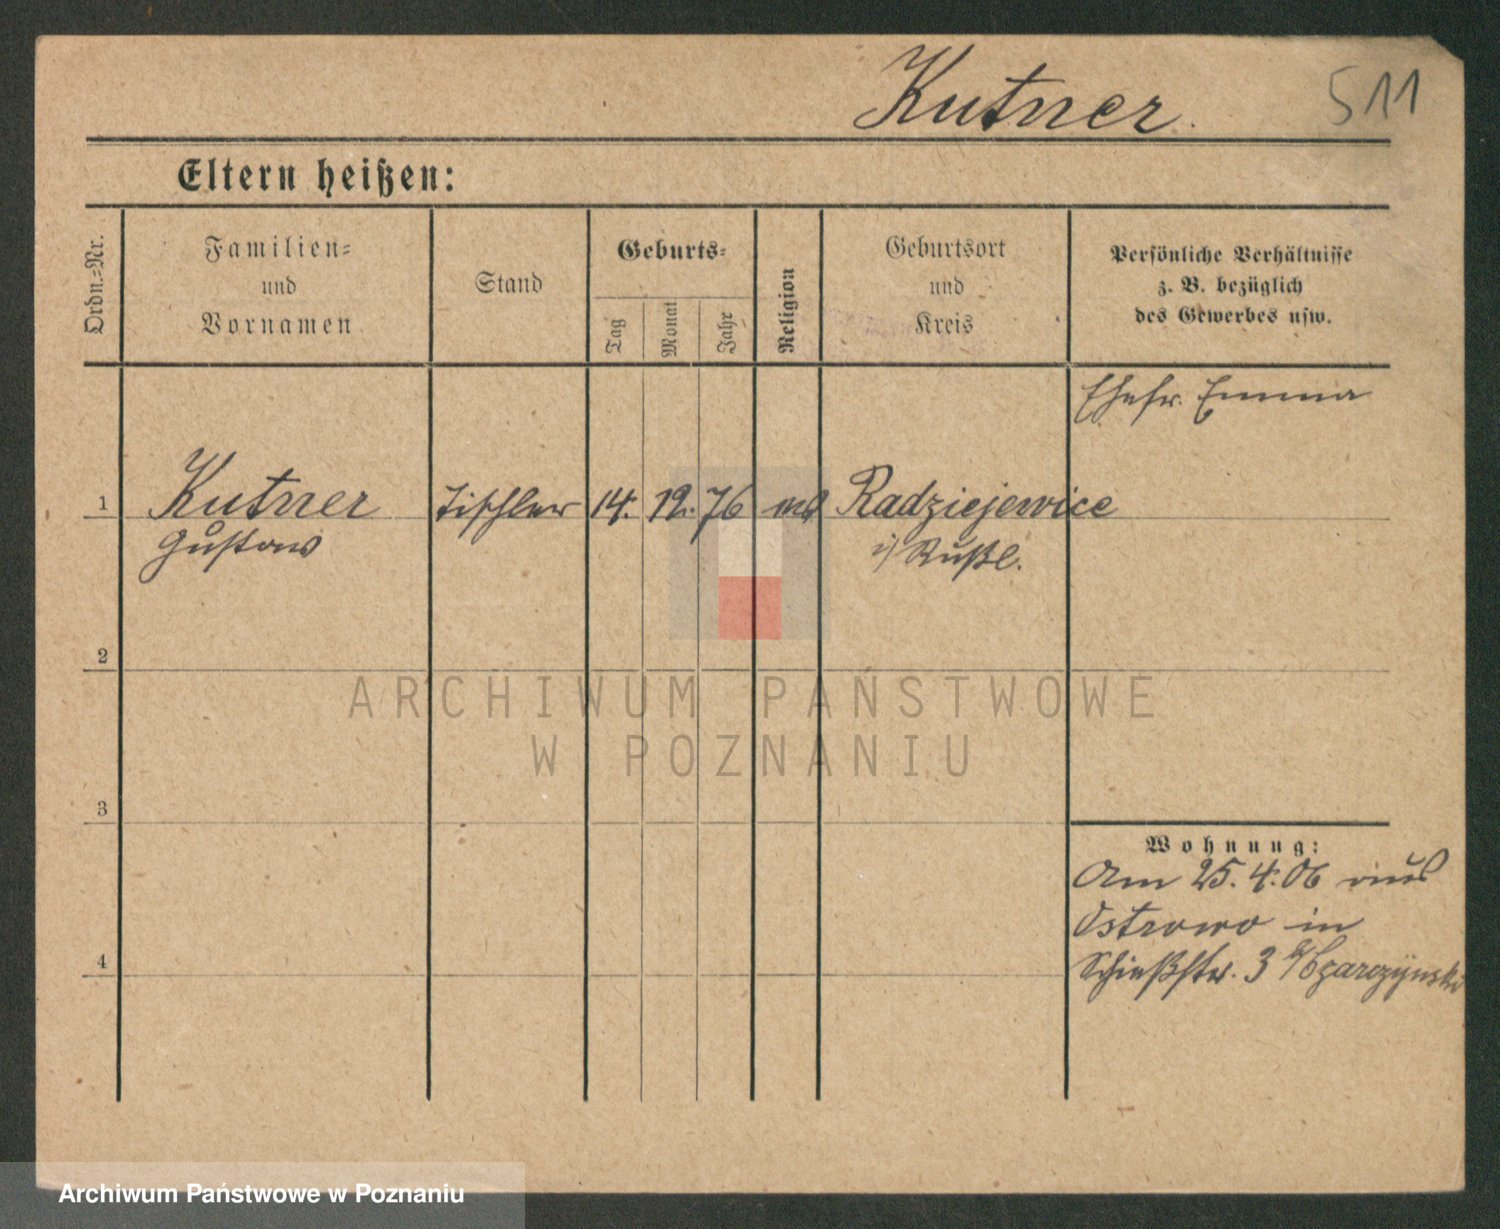 Kutner.
511
Eltern heißen:
Ordn.-Nr.
Familien-
und
Vornamen
Stand
Geburts-
Tag
Monat
Jahr
Religion
Geburtsort
und
Kreis
Persönliche Verhältnisse
z. B. bezüglich
des Gewerbes usw.
Ehefr. Emma
1
Kutner
Gustav
Tischler
14.
12.
76
Radziejewice
i/ Rußl.
2
ARCHIWUM PAŃSTWOWE
W POZNANIU
3
Wohnung:
Am 25.4.06 aus
Ostrowo in
Schießstr. 3
4
Archiwum Państwowe w Poznaniu